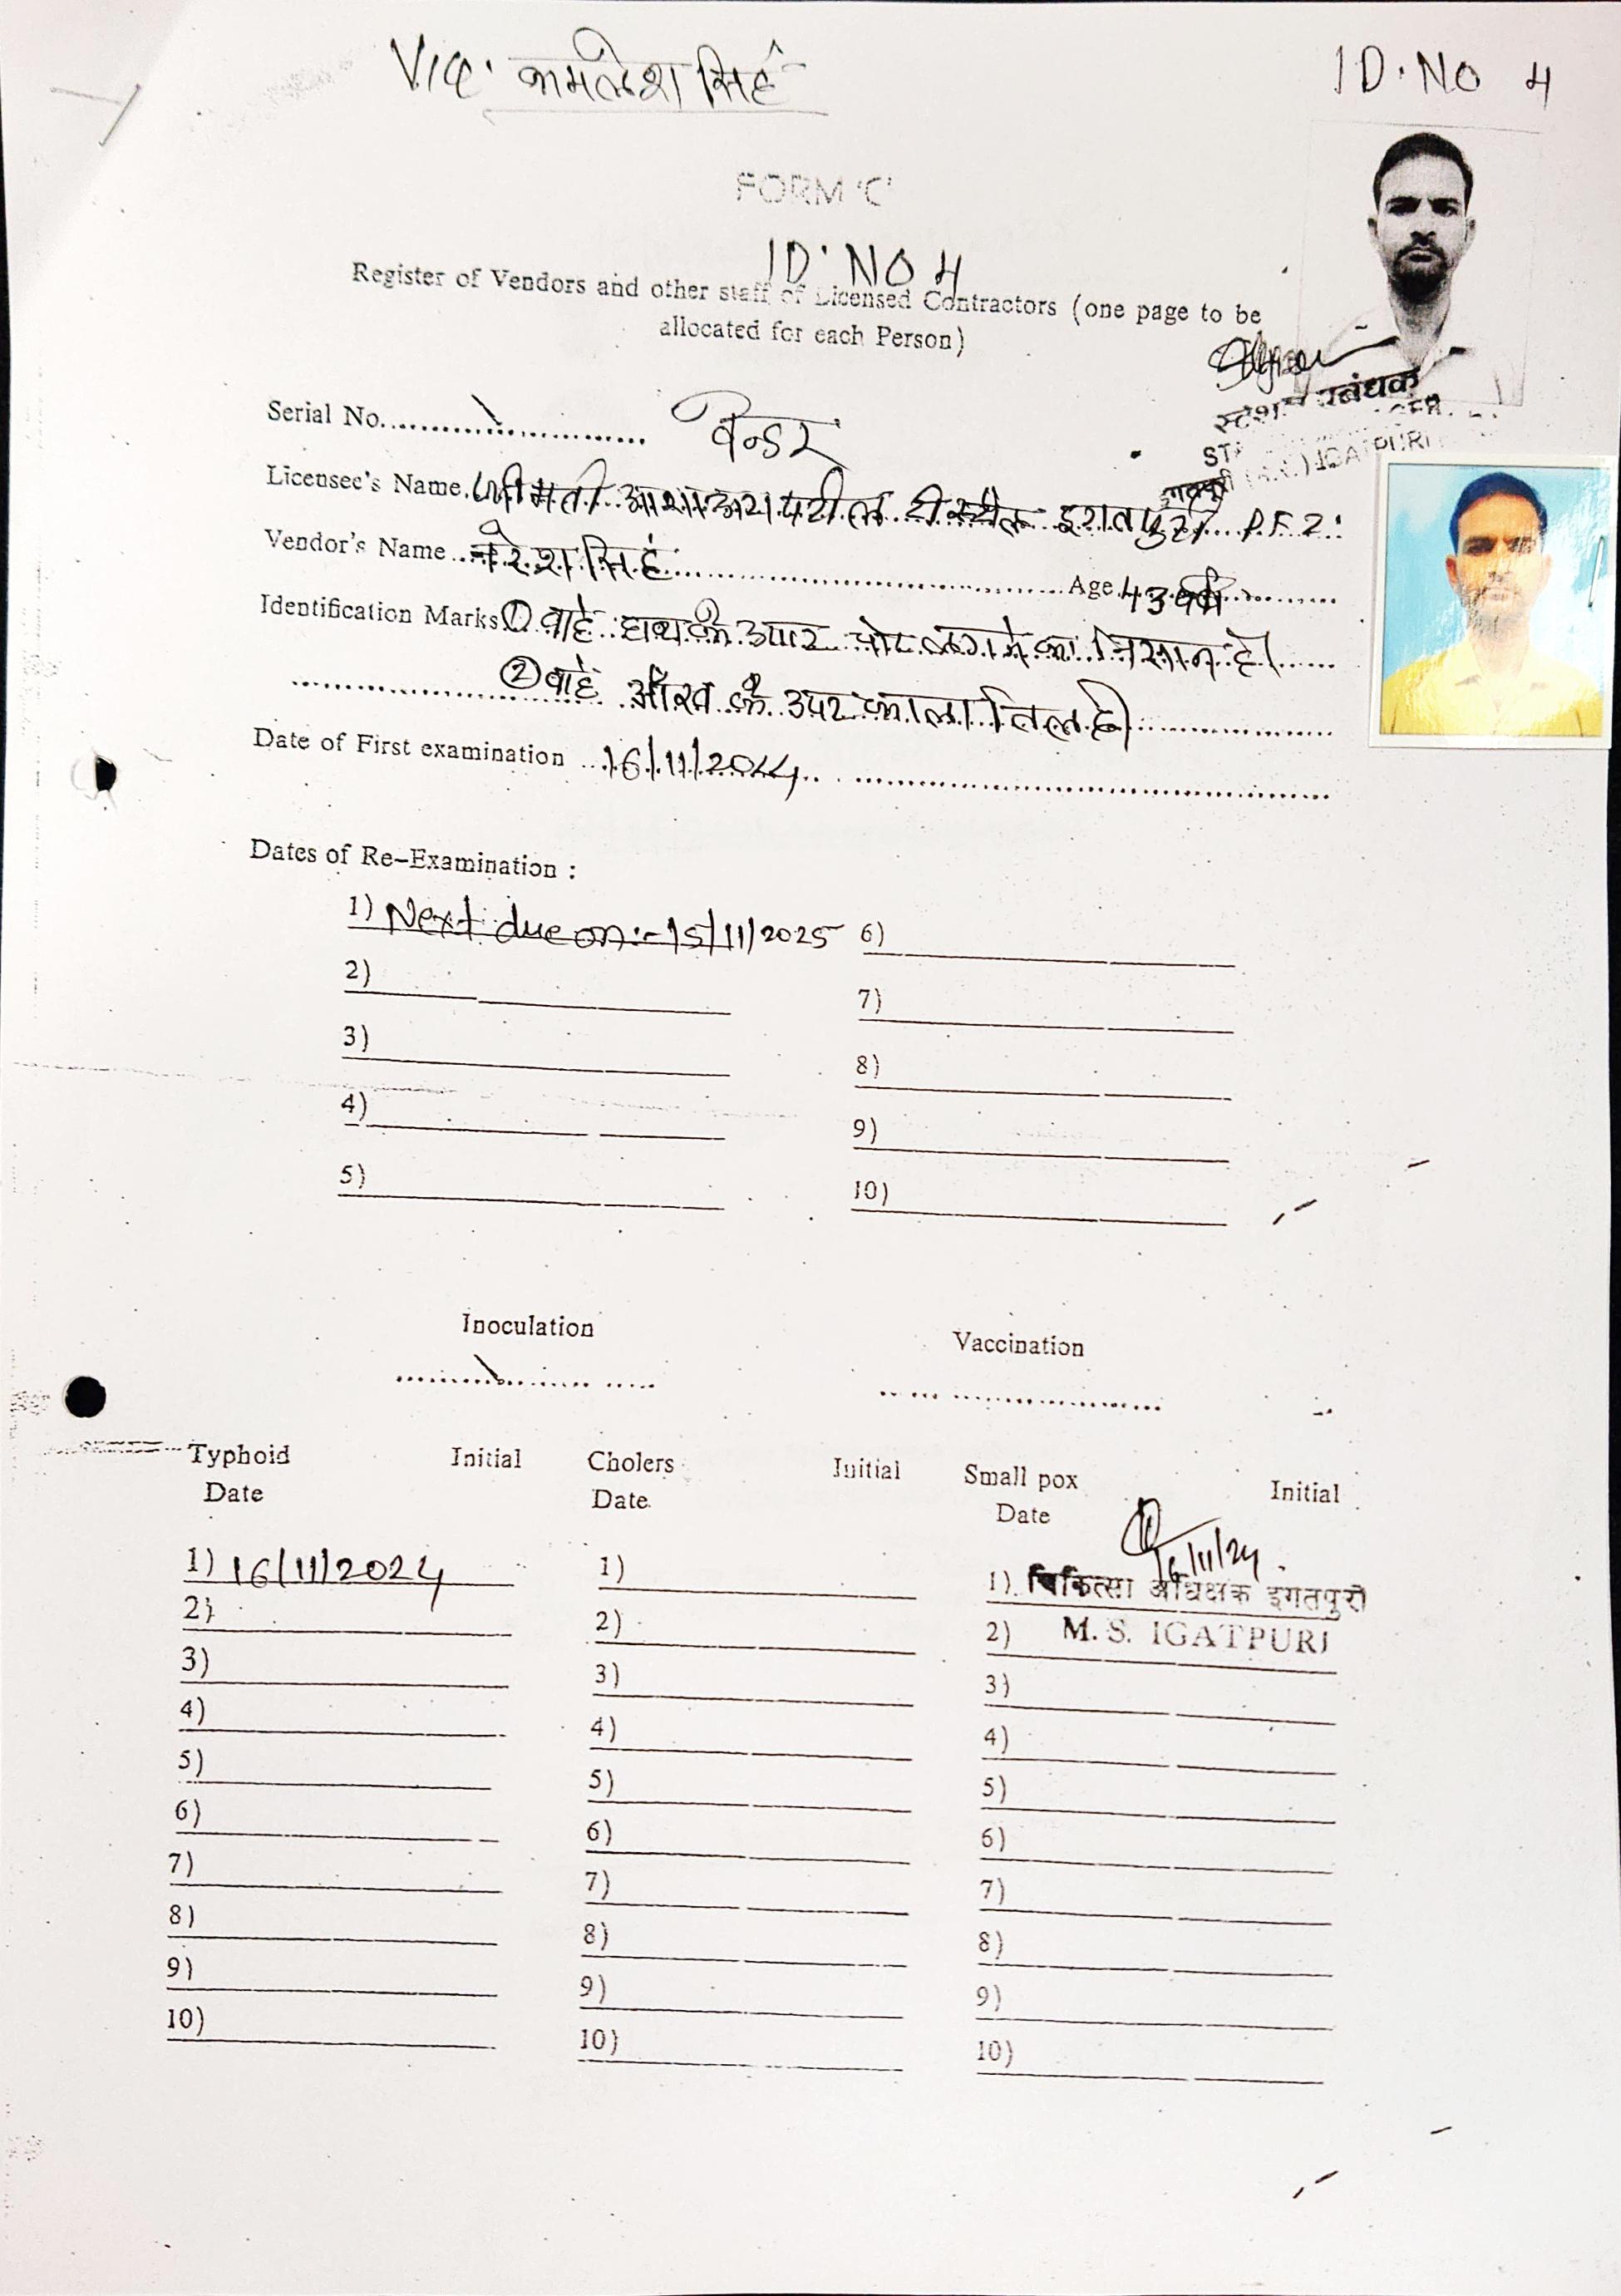 Vic. कामलेश सिहं
ID. NO 4
FORM 'C'
ID. NO 4
Register of Vendors and other staff of Licensed Contractors (one page to be
allocated for each Person)
स्टेशन प्रबंधक
IGATPURI
Serial No. वेन्डर
Licensee's Name श्रीमती आशा पटील टी स्टॉल इगतपुरी P.F. 2
Vendor's Name नरेश सिहं Age 43 वर्ष
Identification Marks ① बाहे हाथ के उपर चोट लगने का निशान है।
② बाहे आँख के उपर काला तिल है।
Date of First examination 16/11/2024
Dates of Re-Examination :
1) Next due on:- 15/11/2025 6)
2) 7)
3) 8)
4) 9)
5) 10)
Inoculation Vaccination
Typhoid Initial Cholers Initial Small pox Initial
Date Date Date
16/11/24
1) 16/11/2024 1) 1) चिकित्सा अधिक्षक इगतपुरी
2) 2) 2) M. S. IGATPURI
3) 3) 3)
4) 4) 4)
5) 5) 5)
6) 6) 6)
7) 7) 7)
8) 8) 8)
9) 9) 9)
10) 10) 10)